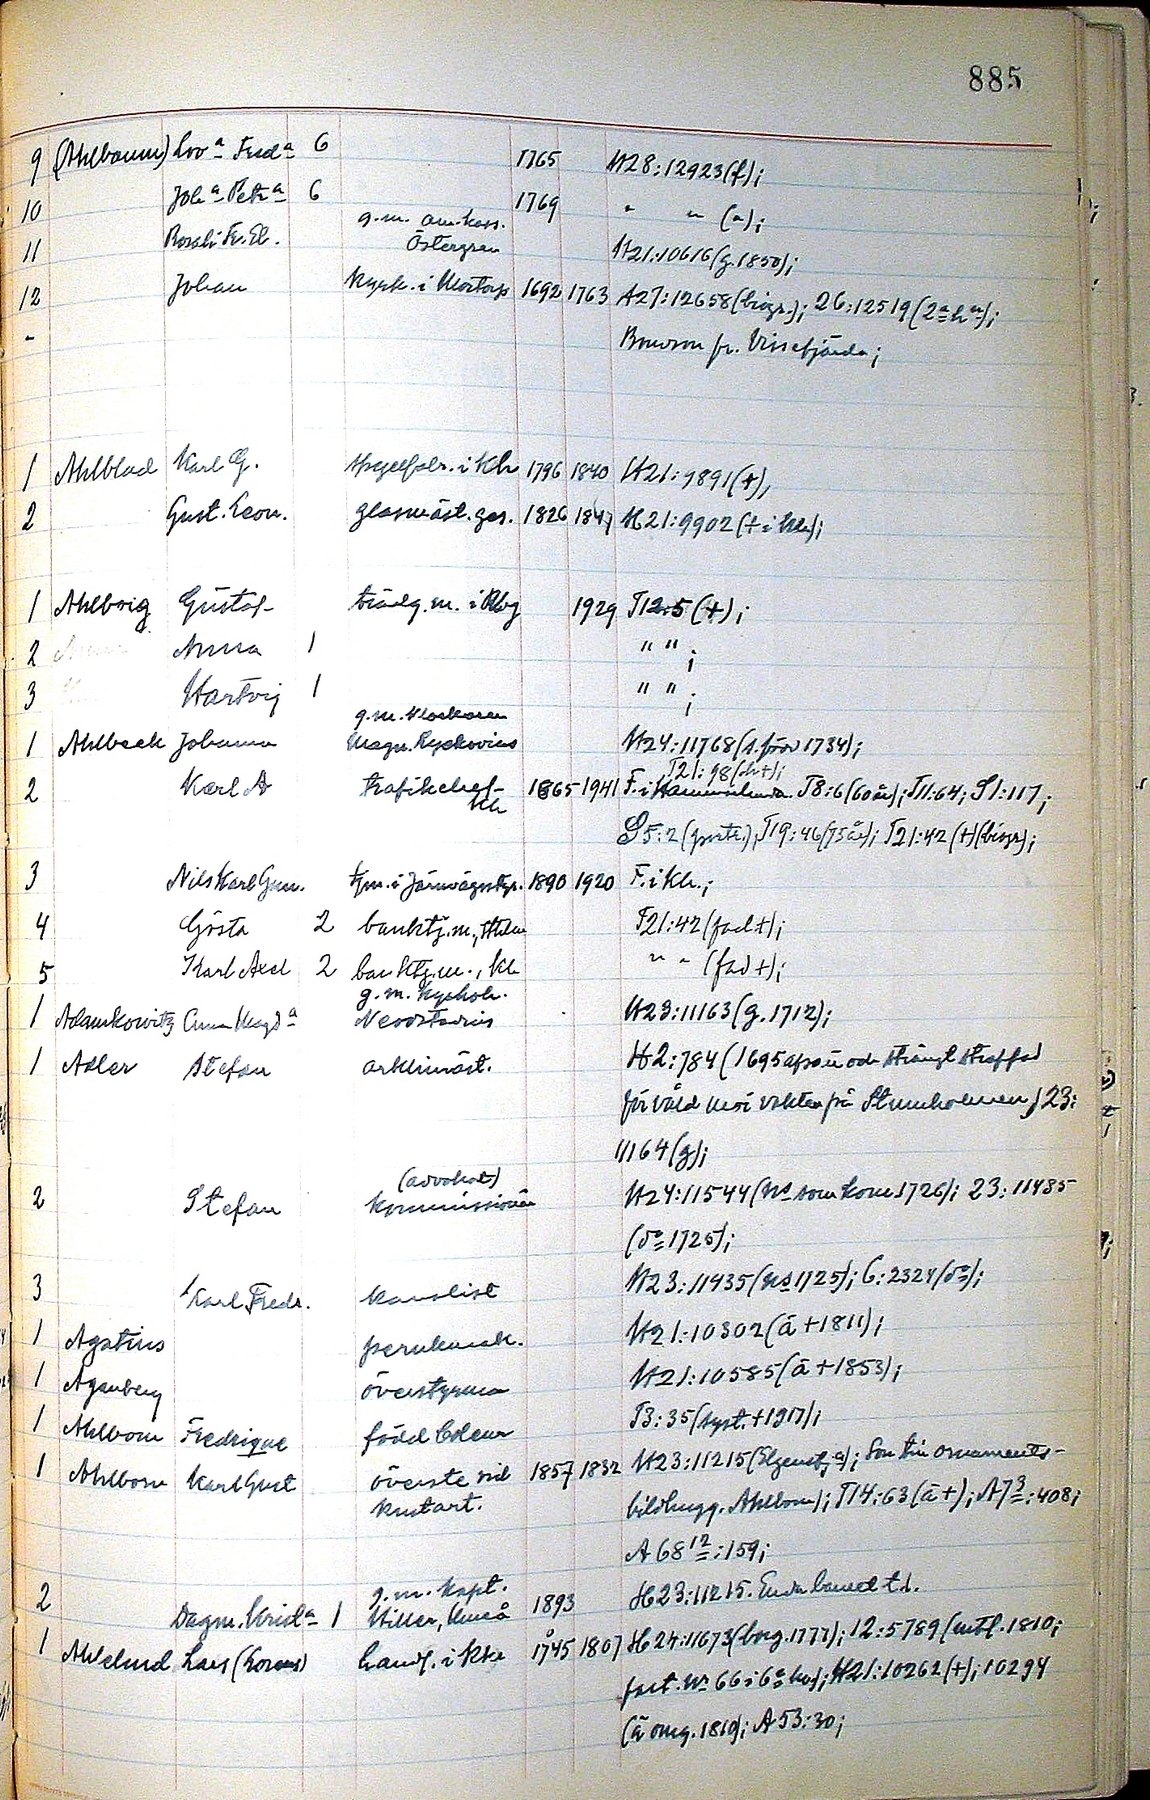 885
9 (Ahlbaum) Lovᵃ Fredᵃ 6 1765 H28:12923(f);
10 Johᵃ Petrᵃ 6 1769 " " (");
11 Rosali Fr. El. g.m. Östergren H21:10616(g.1850);
12 Johan kyrk. i Mortorp 1692 1763 A27:12658(biogr.); 26:12519(2ᵃ hᵘ);
- Brorson fr. Vissefjärda;
1 Ahlblad Karl G. i Klr 1796 1840 H21:9891(+),
2 Gust. Leon. glasmäst. ges. 1826 1847 H21:9902(+ i Klr);
1 Ahlbvig Gustaf trädg.m. i Rbg 1929 T12:5(+);
2 Anna 1 " " ;
3 Hartvig 1 " " ;
g.m. klockaren
1 Ahlbeck Johanna Magn. Ryckovius H24:11768(s.fröv 1734);
T21:98(dr+);
2 Karl A trafikchef Klr 1865 1941 F. i T8:6(60år); T11:64; S1:117;
S5:2(portr.); T19:46(75år); T21:42(+)(biogr);
3 Nils Karl Gun. tjm. i Järnvägsstyr. 1890 1920 F. i Klr.;
4 Gösta 2 banktj.m., Sthlm T21:42(fad.+);
5 Karl Axel 2 banktj.m., Klr " " (fad+);
g.m. kyrkoh.
1 Adamkowitz Anna Magdᵃ Neostadius H23:11163(g.1712);
1 Adler Stefan arklimäst. H2:784(1695 och strängt straffad
för våld mot vakten på Stumholmen) 23:
11164(g);
(advokat)
2 Stefan kommissionär H24:11544(Nᵒ som kom 1726); 23:11485
(dᵒ 1725);
3 Karl Fredr. kanslist H23:11435(Nᵒ 1725); 6:2324(dᵒ);
1 Agatius perukmak. H21:10302(ä+1811);
1 Agenberg överstyrman H21:10585(ä+1853);
1 Ahlbom Fredrique född Coleur T3:35(syst.+1917);
1 Ahlborn Karl Gust överste vid 1857 1832 H23:11215(Elgenst.ᵃ); Son till ornaments-
kustart. bildhugg. Ahlborn); T14:63(ä+); A7³:408;
A68¹²:159;
g.m. kapt.
2 Dagm. Kristᵃ 1 Hiller, Umeå 1893 H23:11215. Enda barnet t.1.
1 Ahlelund Lars (Lorens) handl. i Klr 1745 1807 H24:11673(borg.1777); 12:5789(entl.1810;
fast. Nᵒ 66 i 6ᵃ kv); H21:10262(+); 10294
(ä omg. 1810); A53:30;